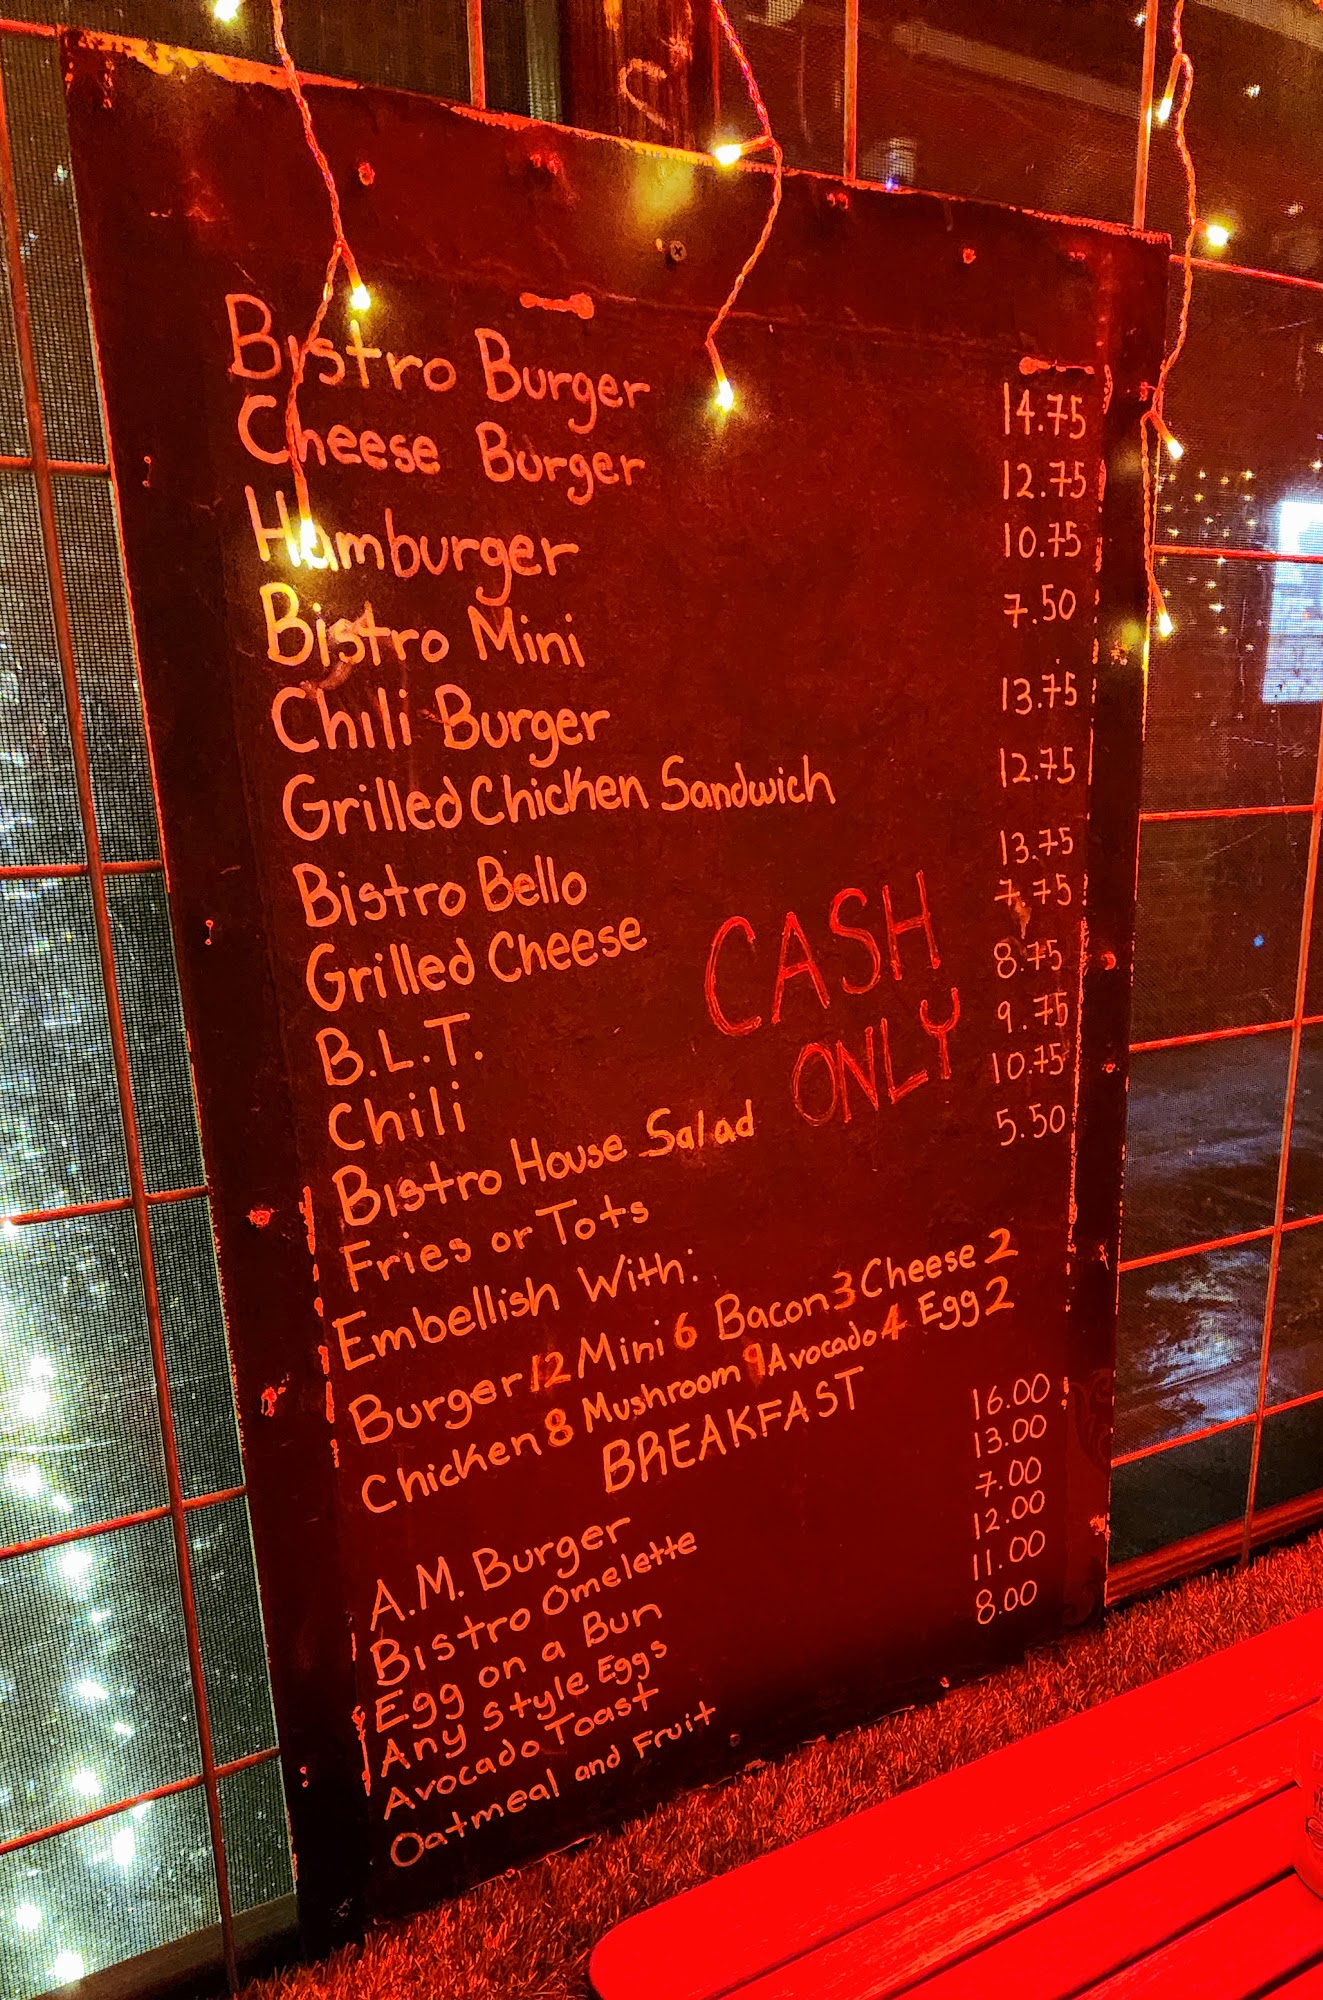 Bistro Burger 14.75
Cheese Burger 12.75
Hamburger 10.75
Bistro Mini 7.50
Chili Burger 13.75
Grilled Chicken Sandwich 12.75
Bistro Bello 13.75
Grilled Cheese 7.75
B.L.T. 8.75
Chili 9.75
Bistro House Salad 10.75
Fries or Tots 5.50
CASH
ONLY
Embellish With:
Burger 12 Mini 6 Bacon 3 Cheese 2
Chicken 8 Mushroom 9 Avocado 4 Egg 2
BREAKFAST
A.M. Burger 16.00
Bistro Omelette 13.00
Egg on a Bun 7.00
Any Style Eggs 12.00
Avocado Toast 11.00
Oatmeal and Fruit 8.00